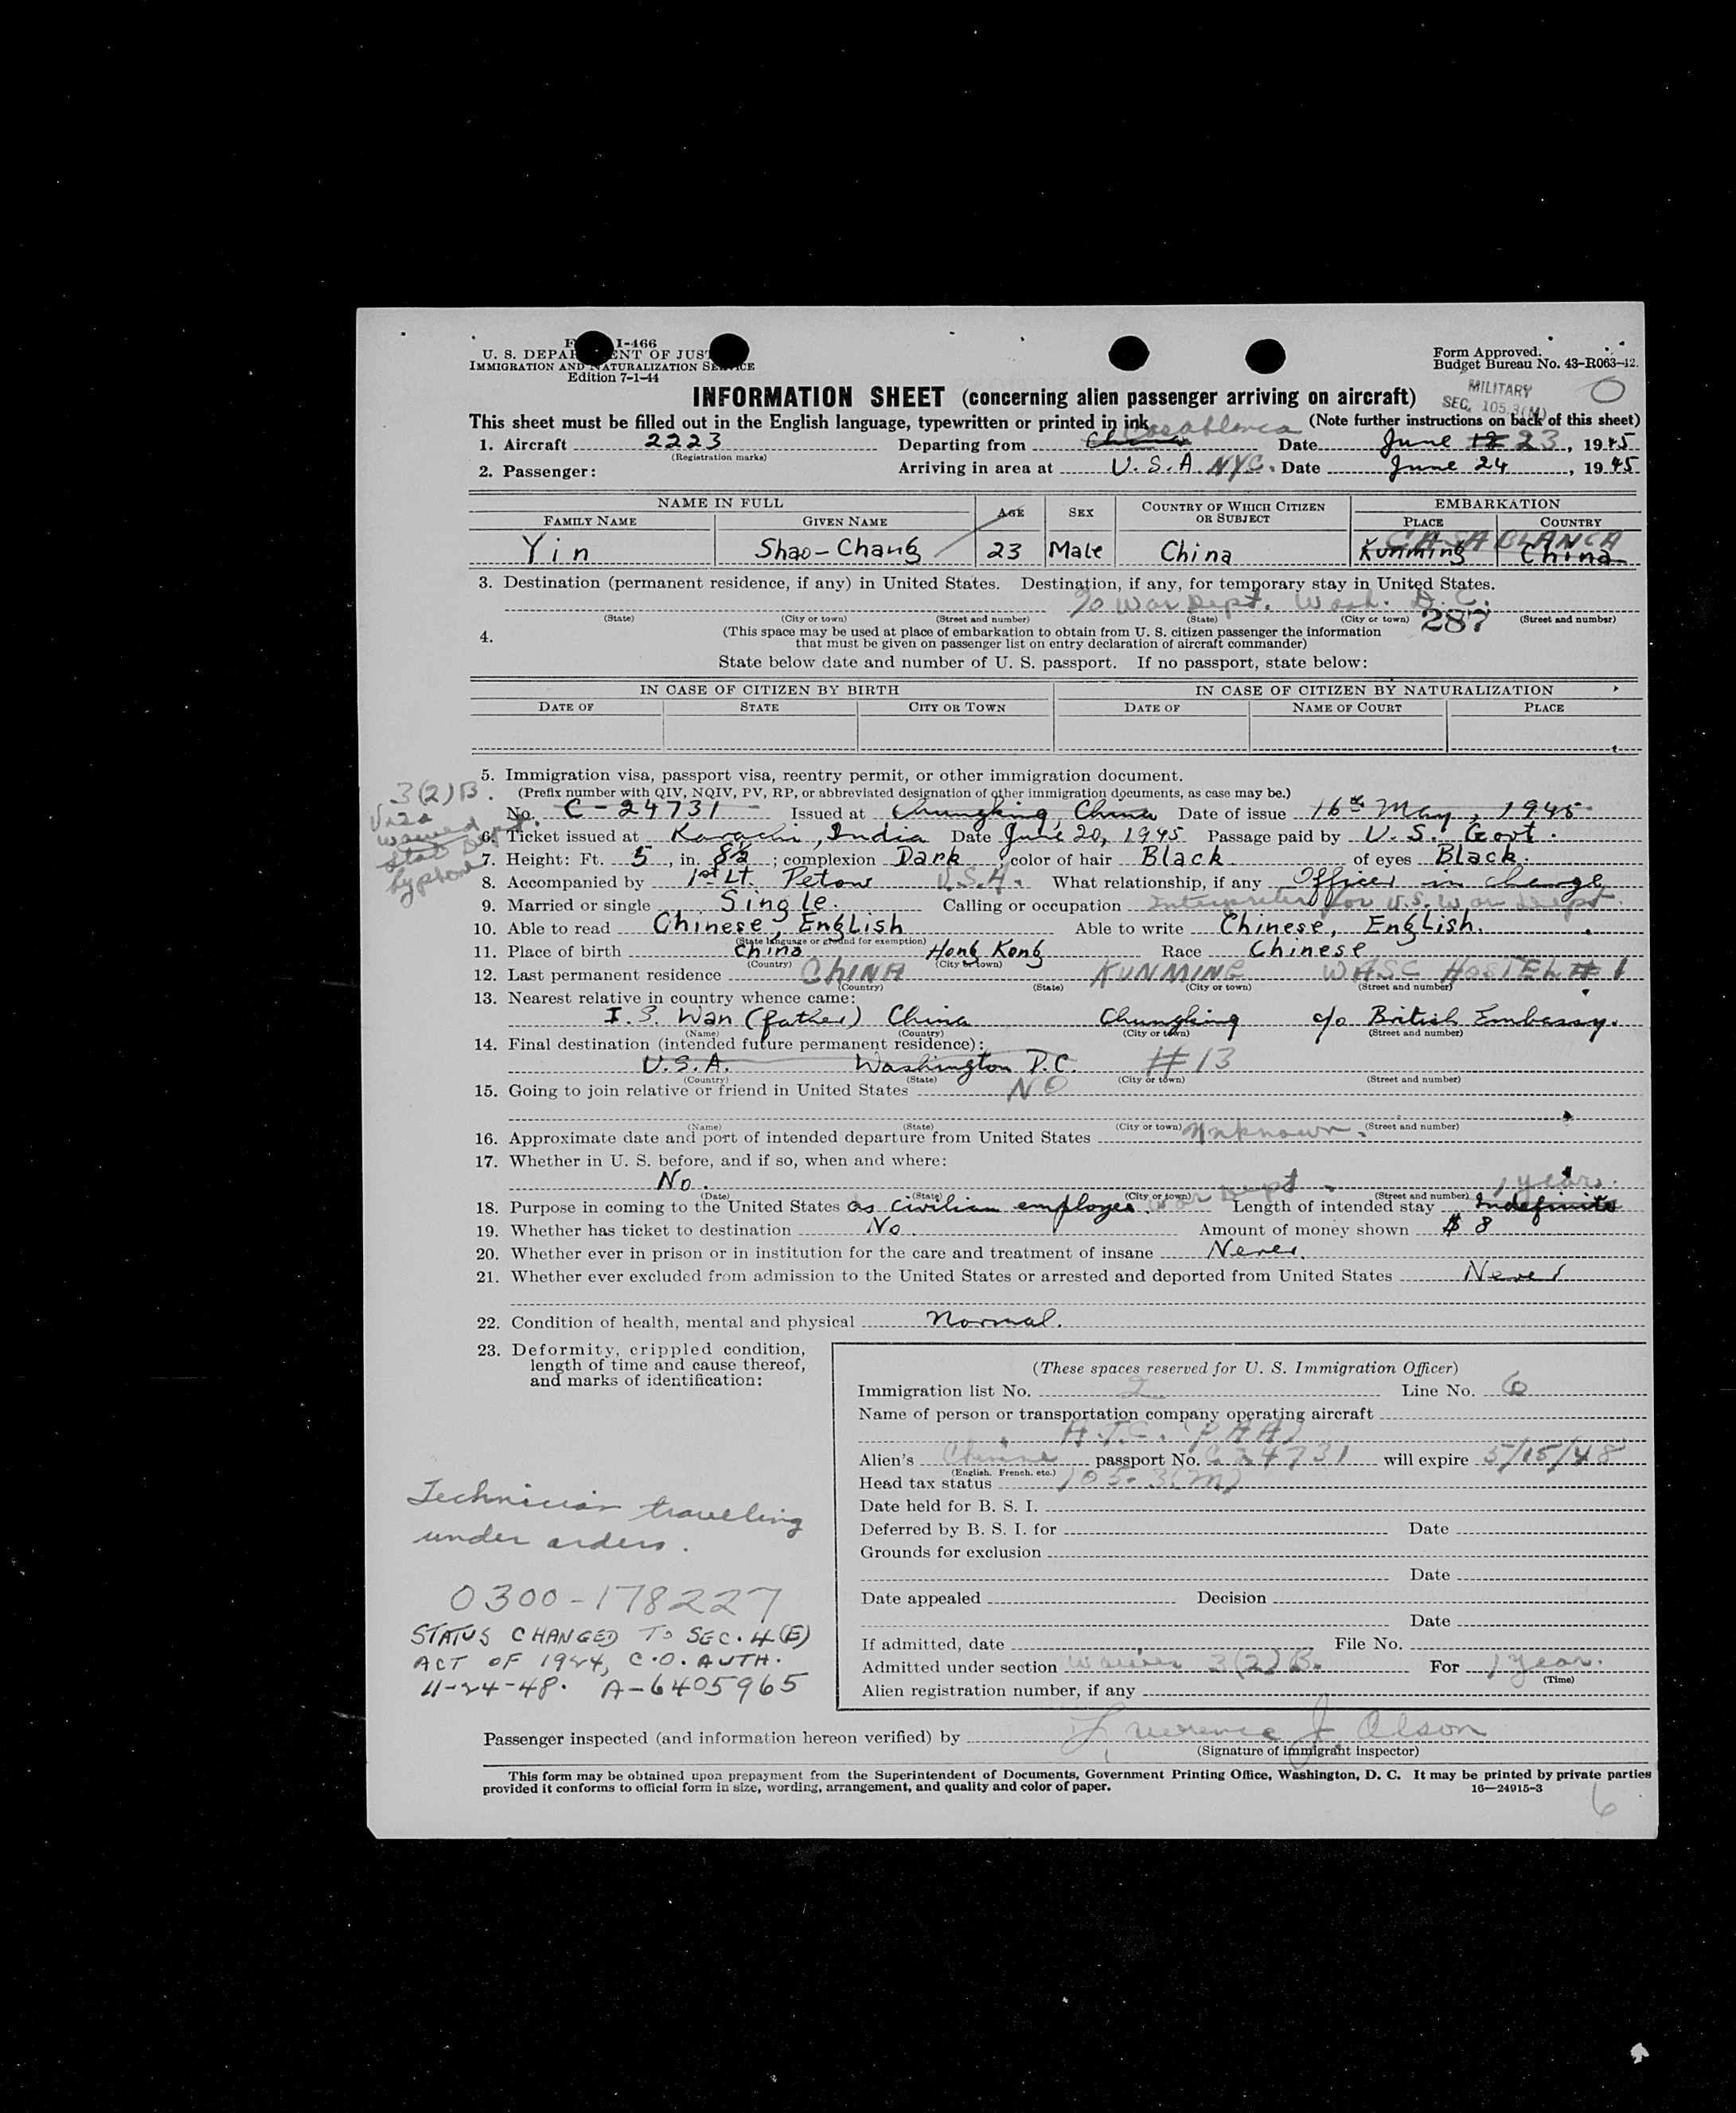 F I-466
U. S. DEPARTMENT OF JUSTICE
IMMIGRATION AND NATURALIZATION SERVICE
Edition 7-1-44
Form Approved.
Budget Bureau No. 43-R063-12.
MILITARY
SEC. 105.3(M)
INFORMATION SHEET (concerning alien passenger arriving on aircraft)
This sheet must be filled out in the English language, typewritten or printed in ink (Note further instructions on back of this sheet)
Casablanca
1. Aircraft 2223 Departing from China Date June 12 23, 1945
(Registration marks)
2. Passenger: Arriving in area at U.S.A. NYC. Date June 24, 1945
NAME IN FULL AGE SEX COUNTRY OF WHICH CITIZEN OR SUBJECT EMBARKATION
FAMILY NAME GIVEN NAME PLACE COUNTRY
CASABLANCA
Yin Shao-Chang 23 Male China Kunming China
3. Destination (permanent residence, if any) in United States. Destination, if any, for temporary stay in United States.
c/o War Dept. Wash. D.C.
(State) (City or town) (Street and number) (State) (City or town) 287 (Street and number)
4. (This space may be used at place of embarkation to obtain from U. S. citizen passenger the information
that must be given on passenger list on entry declaration of aircraft commander)
State below date and number of U. S. passport. If no passport, state below:
IN CASE OF CITIZEN BY BIRTH IN CASE OF CITIZEN BY NATURALIZATION
DATE OF STATE CITY OR TOWN DATE OF NAME OF COURT PLACE
5. Immigration visa, passport visa, reentry permit, or other immigration document.
(Prefix number with QIV, NQIV, PV, RP, or abbreviated designation of other immigration documents, as case may be.)
3(2)B.
Visa
waived
Stat Dept.
by phone
No. C-24731 Issued at Chungking, China Date of issue 16th May, 1945
6. Ticket issued at Karachi, India Date June 20, 1945 Passage paid by U.S. Govt.
7. Height: Ft. 5, in. 8½; complexion Dark; color of hair Black of eyes Black.
8. Accompanied by 1st Lt. Petow U.S.A. What relationship, if any Officer in charge
9. Married or single Single. Calling or occupation Interpreter for U.S. War Dept.
10. Able to read Chinese, English Able to write Chinese, English.
(State language or ground for exemption)
11. Place of birth China Hong Kong Race Chinese
(Country) (City or town)
12. Last permanent residence CHINA KUNMING WASC HOSTEL #1
(Country) (State) (City or town) (Street and number)
13. Nearest relative in country whence came:
I.S. Wan (father) China Chungking c/o British Embassy.
(Name) (Country) (City or town) (Street and number)
14. Final destination (intended future permanent residence):
U.S.A. Washington D.C. #13
(Country) (State) (City or town) (Street and number)
15. Going to join relative or friend in United States NO
(Name) (State) (City or town) (Street and number)
16. Approximate date and port of intended departure from United States Unknown.
17. Whether in U. S. before, and if so, when and where:
No. 1 year.
(Date) (State) (City or town) (Street and number)
18. Purpose in coming to the United States as civilian employee. War Dept. Length of intended stay Indefinite
19. Whether has ticket to destination No. Amount of money shown $ 8
20. Whether ever in prison or in institution for the care and treatment of insane Never.
21. Whether ever excluded from admission to the United States or arrested and deported from United States Never
22. Condition of health, mental and physical Normal.
23. Deformity, crippled condition,
length of time and cause thereof,
and marks of identification:
Technician travelling
under orders.
0300-178227
STATUS CHANGED TO SEC. 4(E)
ACT OF 1924, C.O. AUTH.
11-24-48. A-6405965
(These spaces reserved for U. S. Immigration Officer)
Immigration list No. 2 Line No. 6
Name of person or transportation company operating aircraft
A.T.C. (PAA)
Alien's Chinese passport No. C 24731 will expire 5/15/48
(English, French, etc.)
Head tax status 105.3(M)
Date held for B. S. I.
Deferred by B. S. I. for Date
Grounds for exclusion
Date
Date appealed Decision
Date
If admitted, date File No.
Admitted under section Waiver 3(2)B. For 1 year.
(Time)
Alien registration number, if any
Passenger inspected (and information hereon verified) by Lawrence J. Olson
(Signature of immigrant inspector)
This form may be obtained upon prepayment from the Superintendent of Documents, Government Printing Office, Washington, D. C. It may be printed by private parties
provided it conforms to official form in size, wording, arrangement, and quality and color of paper. 16—24915-3
6